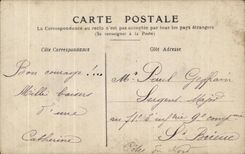 CARTE POSTALE
La Correspondance au recto n'est pas acceptée par tous les pays étrangers
(Se renseigner à la Poste)
Côté Correspondance
Côté Adresse
Bon courage !...
Mille baisers
Catherine
Mr Paul
Sergent Major
au 71e 9e
St Brieuc
Côtes du Nord